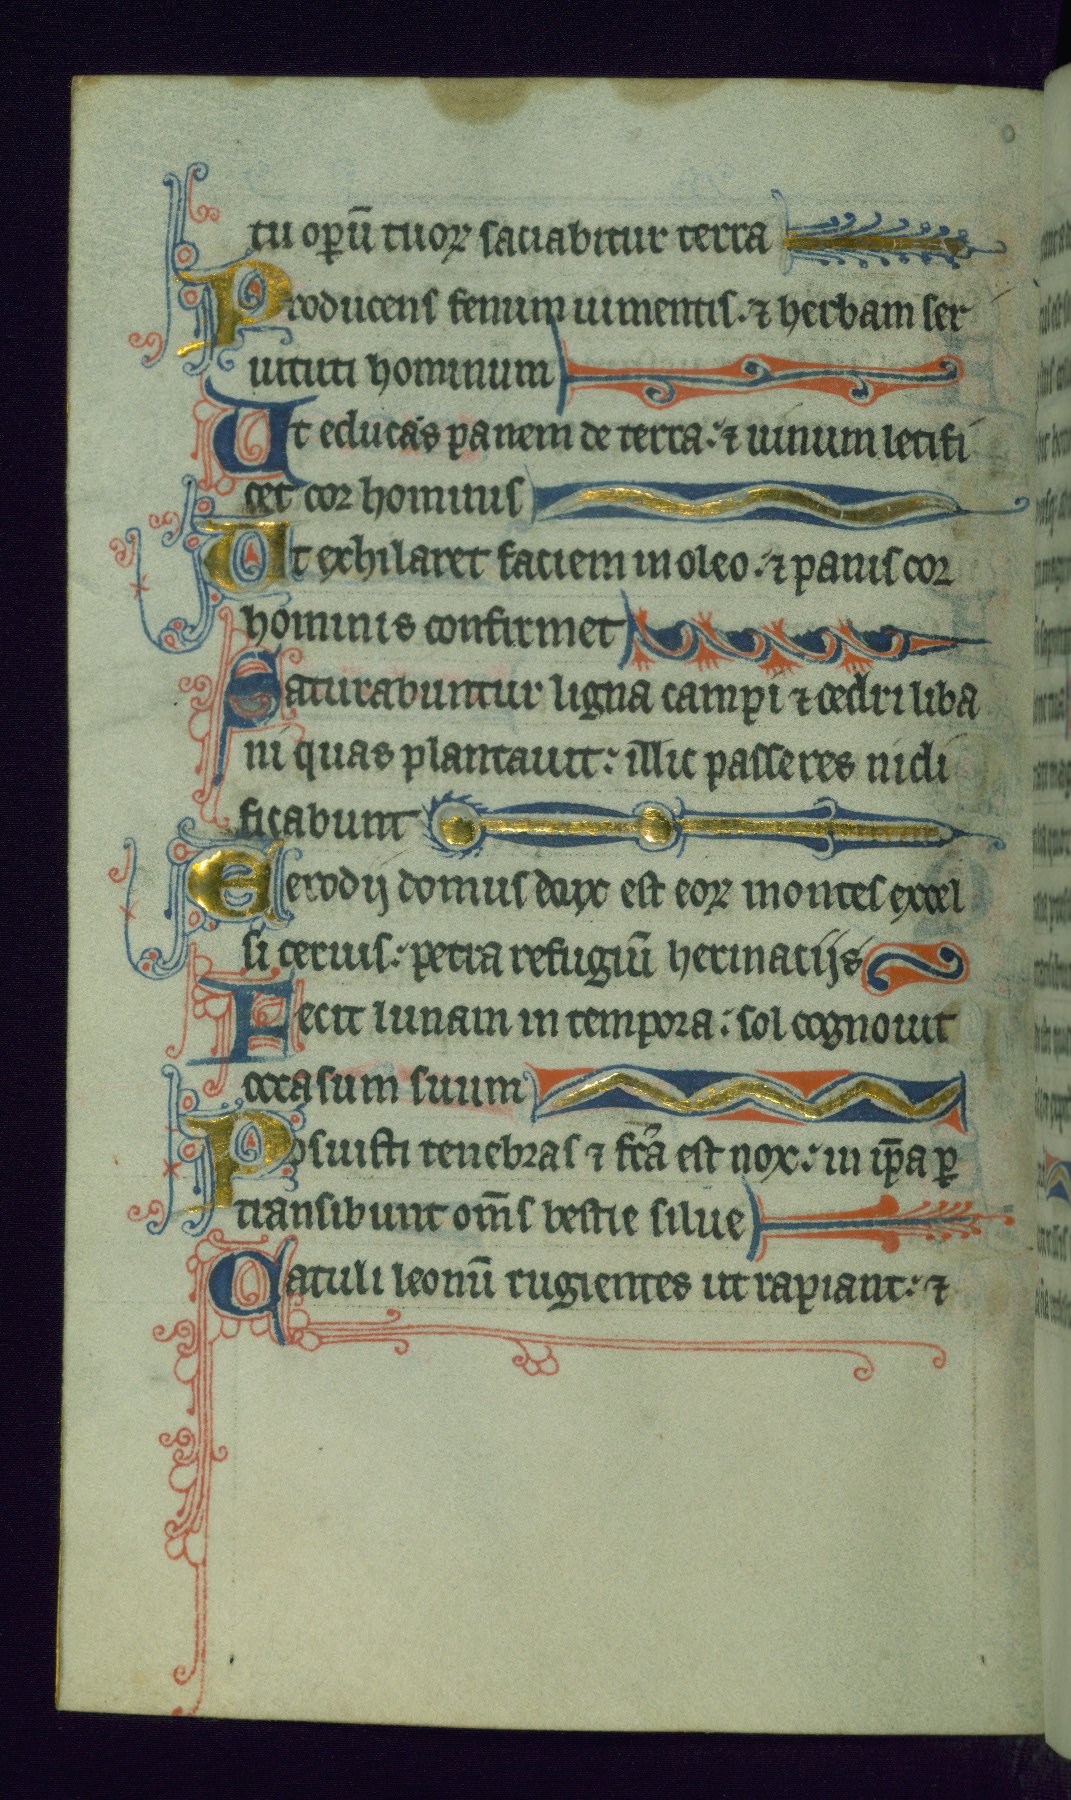 tu operū tuoꝝ saciabitur terra
Producens fenum iumentis. ⁊ herbam ser
uituti hominum
Ut educas panem de terra: ⁊ uinum letifi
cet cor hominis
Ut exhilaret faciem in oleo: ⁊ panis cor
hominis confirmet
Saturabuntur ligna campi ⁊ cedri liba
ni quas plantauit: illic passeres nidi
ficabunt
Erodij domus dux est eoꝝ montes excel
si ceruis: petra refugiū herinacijs
Fecit lunam in tempora: sol cognouit
occasum suum
Posuisti tenebras ⁊ fcā est nox: in ip̄a ꝑ
transibunt om̄s bestie silue
Catuli leonū rugientes ut rapiant: ⁊